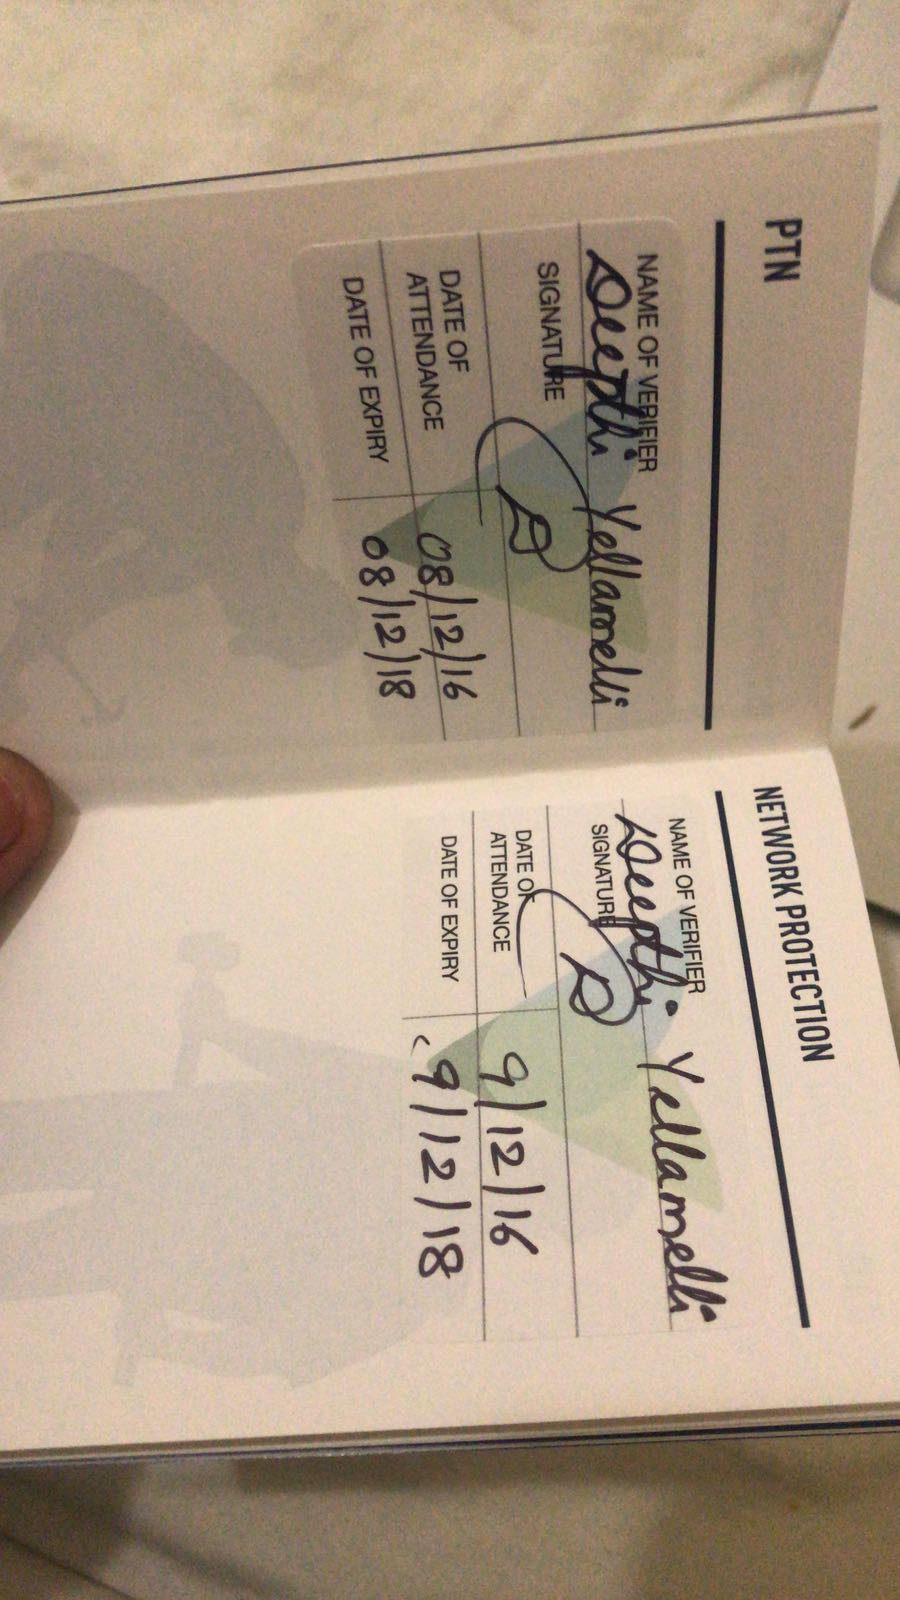 PTN
NAME OF VERIFIER
Deepthi Yellamelli
SIGNATURE
D
DATE OF
ATTENDANCE
08/12/16
DATE OF EXPIRY
08/12/18
NETWORK PROTECTION
NAME OF VERIFIER
Deepthi Yellamelli
SIGNATURE
D
DATE OF
ATTENDANCE
9/12/16
DATE OF EXPIRY
9/12/18